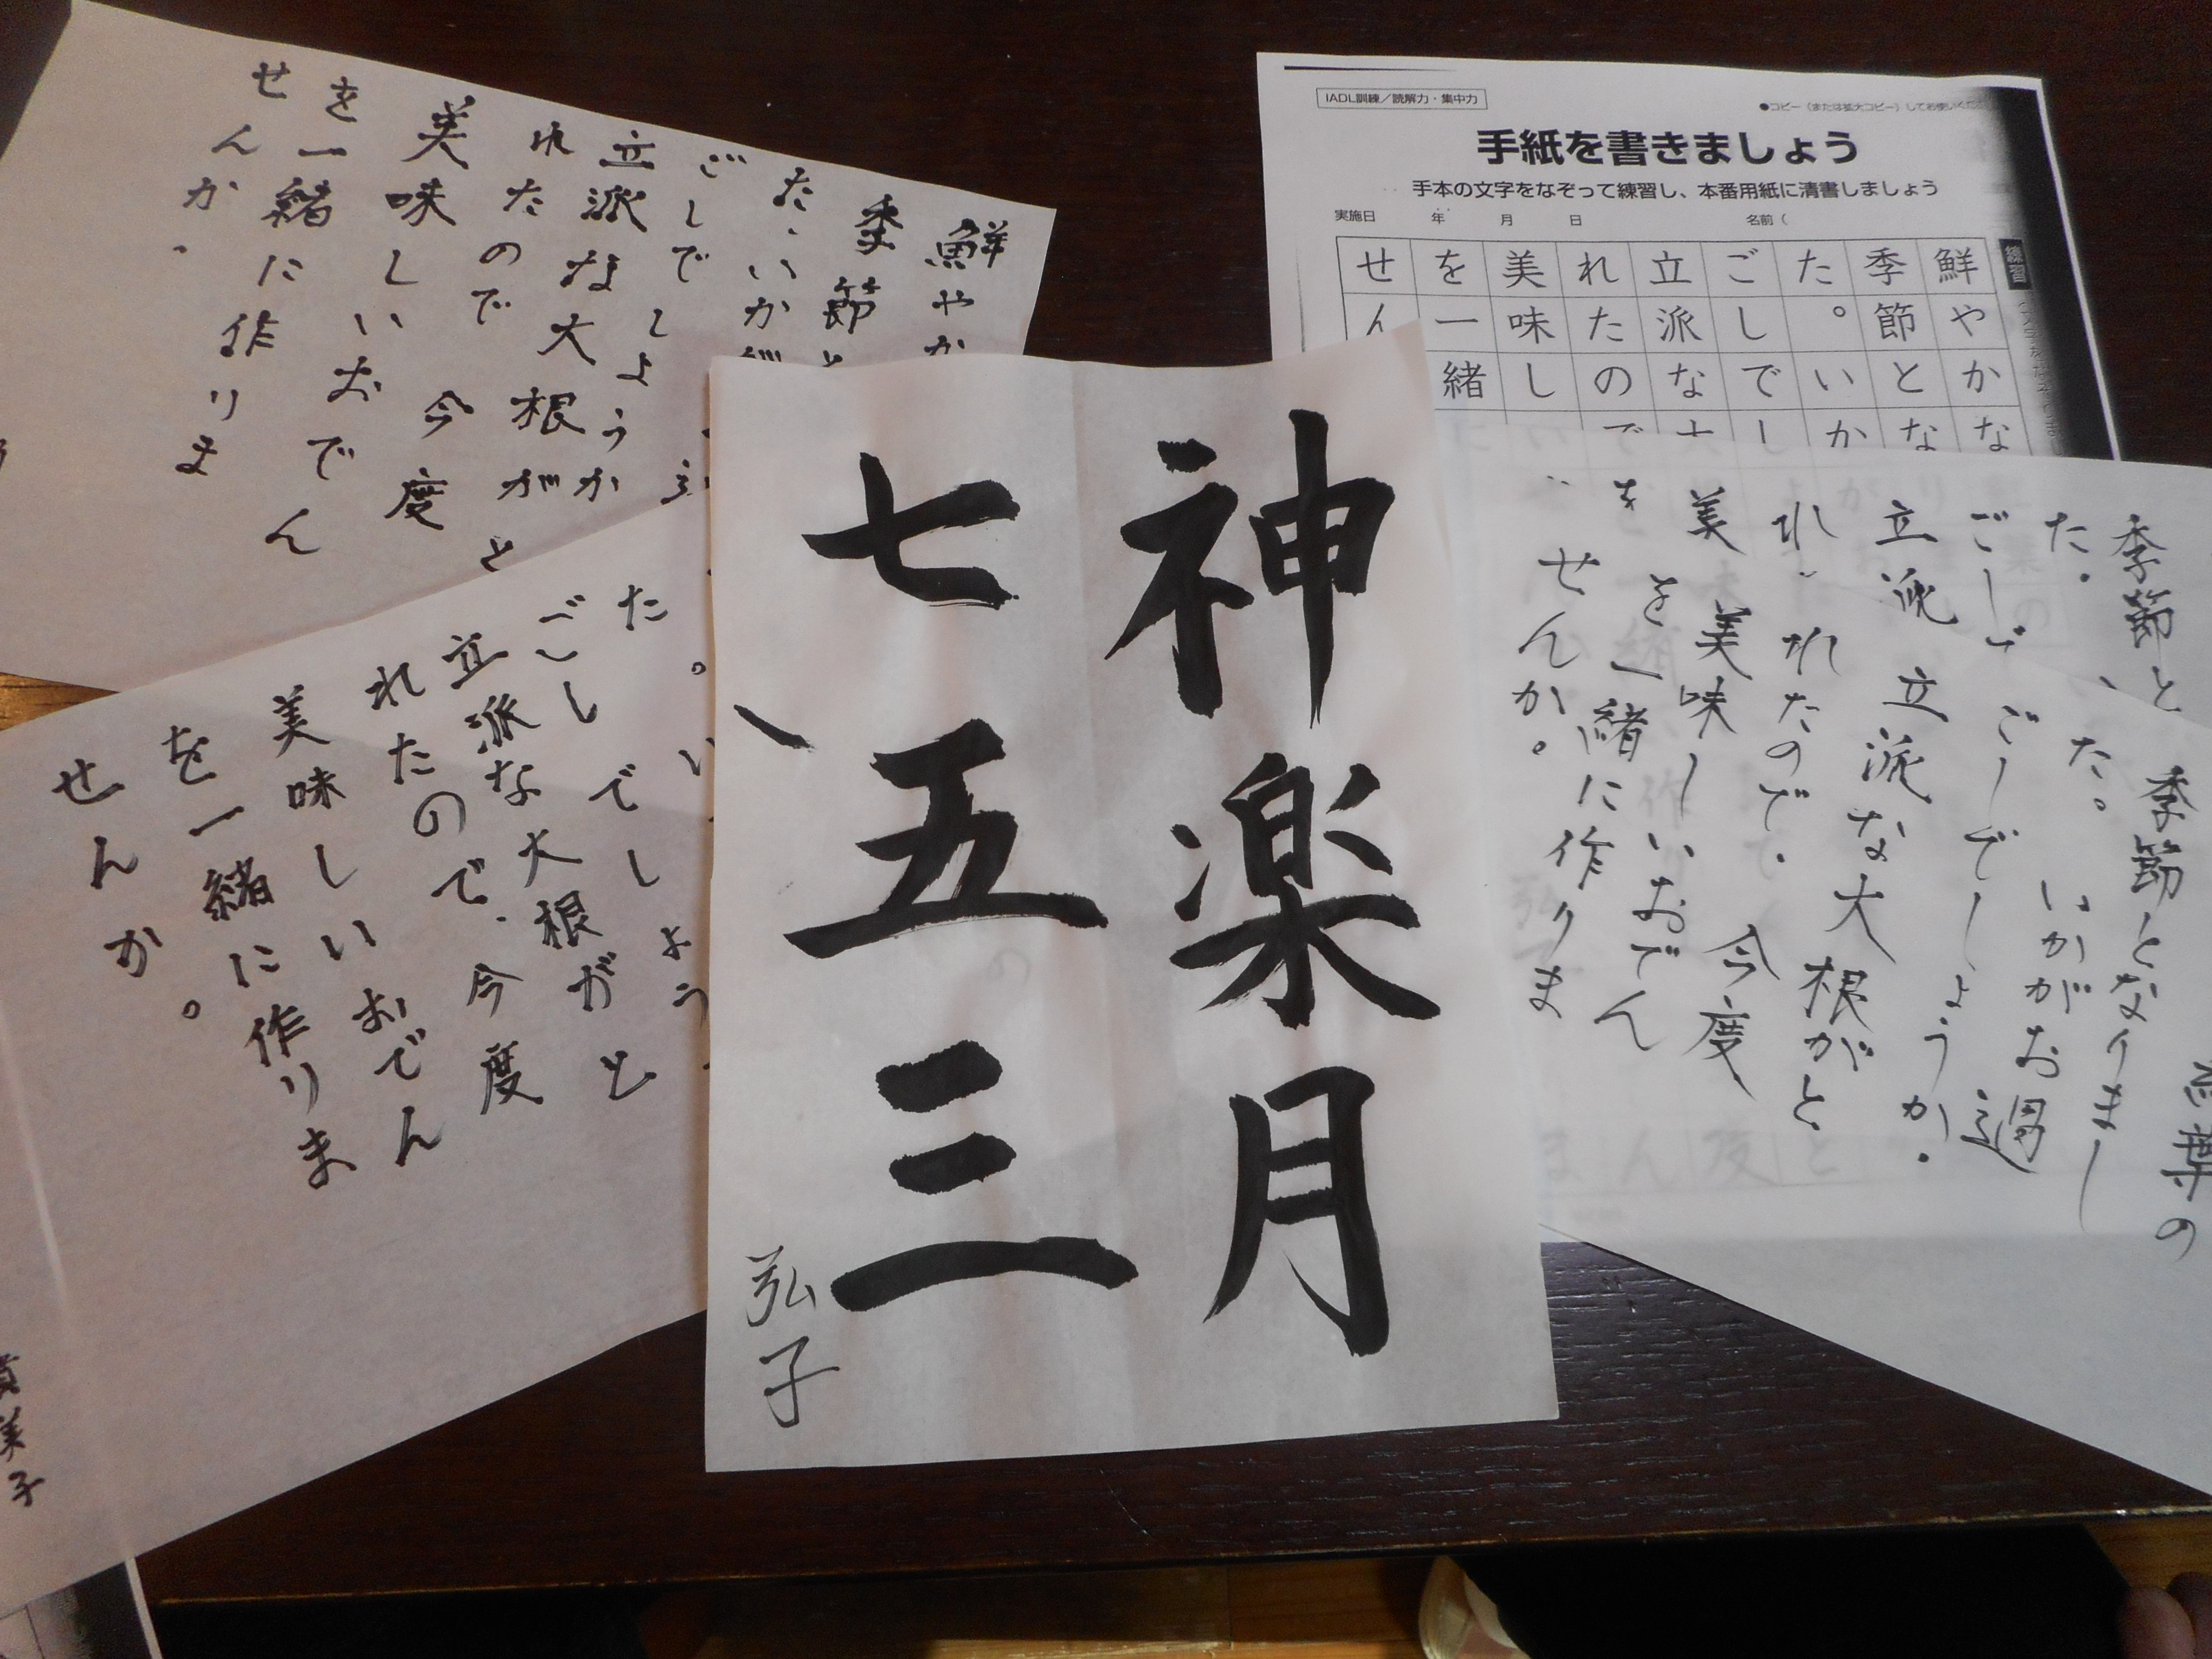 神楽月
七五三
弘子
IADL訓練／読解力・集中力
●コピー（または拡大コピー）してお使いくだ
手紙を書きましょう
手本の文字をなぞって練習し、本番用紙に清書しましょう
実施日　年　月　日　名前（
練習
鮮やかな
季節とな
た。いか
ごしでし
立派な大
れたので
美味し
を一緒
せん
鮮やか
季節と
た.いかが
ごしでしょうか
立派な大根がと
れたので　今度
美味しいおでん
を一緒に作りま
せんか.
た。い
ごしでしょう
立派な大根がと
れたので.今度
美味しいおでん
を一緒に作りま
せんか。
美子
季節と
た.
ごしで
立派
れ
美
を
葉の
季節となりまし
た。いかがお過
ごしでしょうか.
立派な大根がと
れたので.今度
美味しいおでん
を一緒に作りま
せんか。